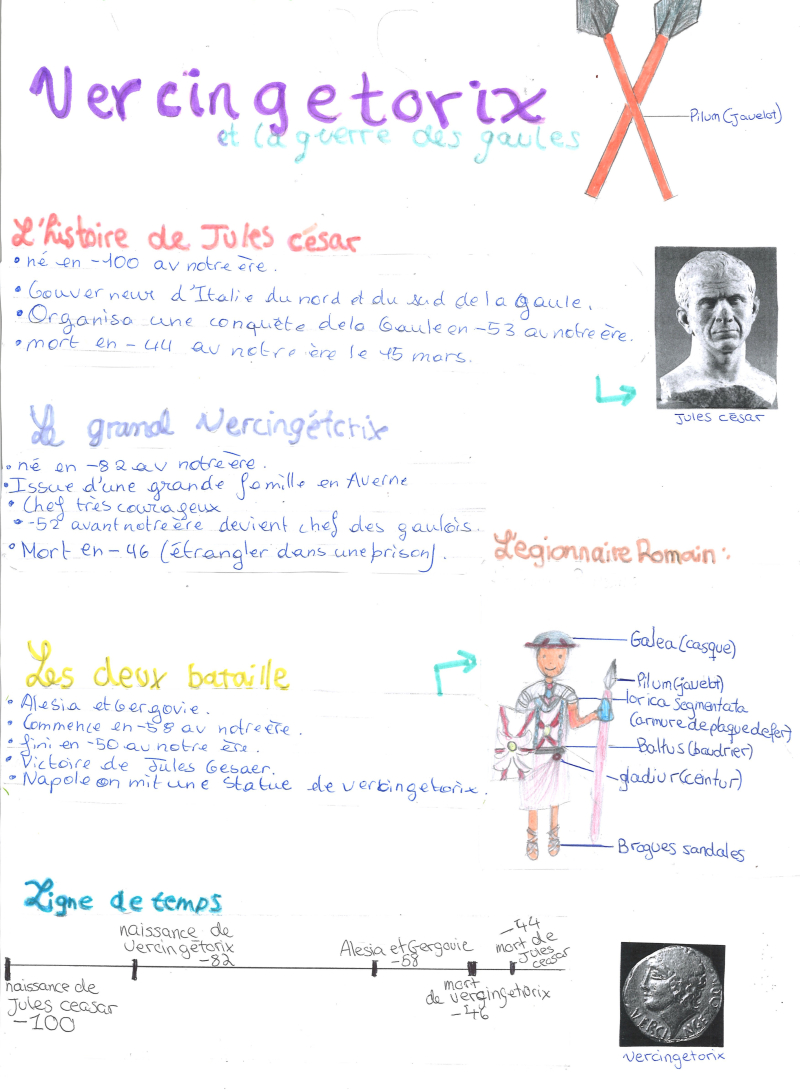 Vercingetorix
et la guerre des gaules
Pilum (Javelot)
L'histoire de Jules césar
• né en -100 av notre ère.
• Gouverneur d'Italie du nord et du sud de la gaule.
• Organisa une conquête dela Gaule en -53 av notre ère.
• mort en -44 av notre ère le 15 mars.
Jules césar
Le grand Vercingétorix
• né en -82 av notre ère.
• Issue d'une grande famille en Averne
• Chef très courageux
• -52 avant notre ère devient chef des gaulois.
• Mort en -46 (étrangler dans une prison).
L'egionnaire Romain :
Galea (casque)
Pilum (javelot)
lorica segmentata
(armure de plaque de fer)
Baltus (baudrier)
gladiur (ceintur)
Brogues sandales
Les deux bataille
• Alesia et Gergovie.
• Commence en -58 av notre ère.
• fini en -50 av notre ère.
• Victoire de Jules Cesaer.
• Napoleon mit une statue de vercingetorix.
Ligne de temps
naissance de
Jules ceasar
-100
naissance de
Vercingétorix
-82
Alesia et Gergovie
-58
mort
de vergingetorix
-46
-44
mort de
Jules
ceasar
VERCI
vercingetorix